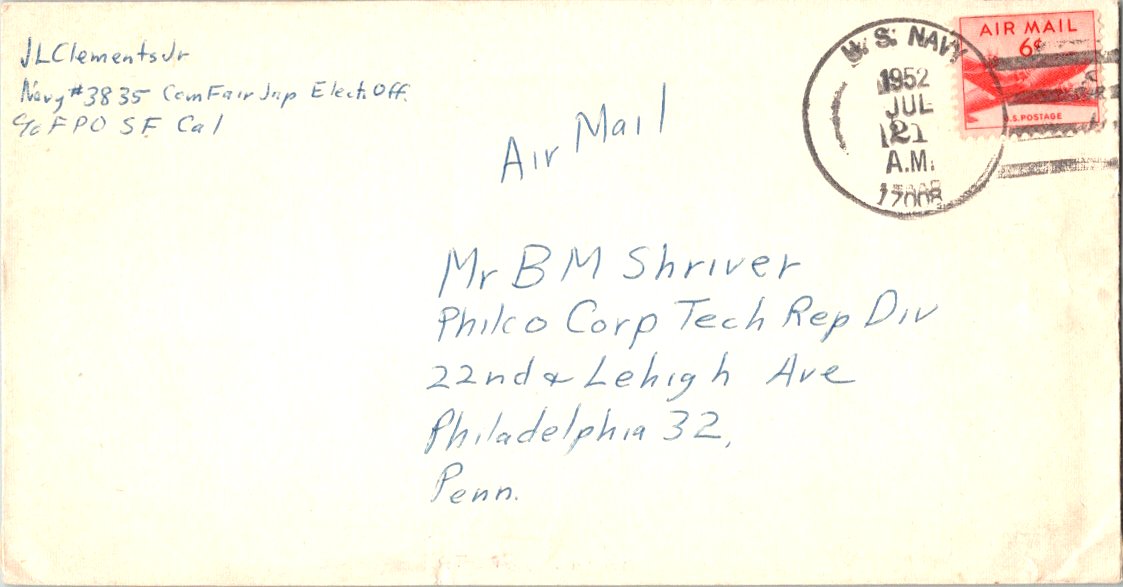 JLClements Jr
Navy #3835 ComFairJap Elect. Off.
c/o F P O S F. Cal
Air Mail
U. S. NAVY
1952
JUL
21
A.M.
17008
AIR MAIL
6¢
U.S. POSTAGE
Mr B M Shriver
Philco Corp Tech Rep Div
22nd & Lehigh Ave
Philadelphia 32,
Penn.